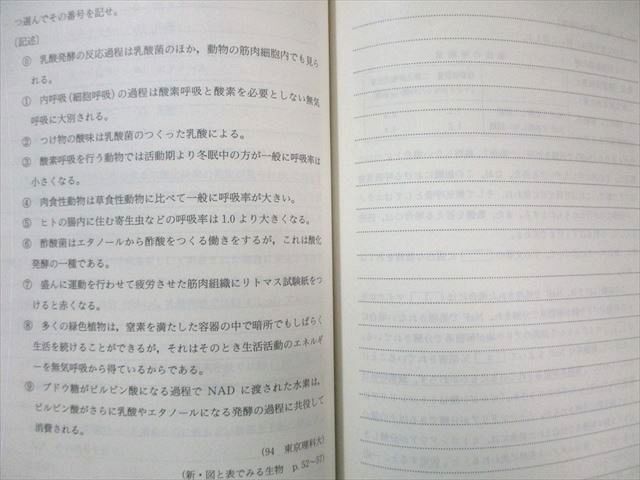 つ選んでその番号を記せ。
〔記述〕
⓪ 乳酸発酵の反応過程は乳酸菌のほか，動物の筋肉細胞内でも見ら
れる。
① 内呼吸（細胞呼吸）の過程は酸素呼吸と酸素を必要としない無気
呼吸に大別される。
② つけ物の酸味は乳酸菌のつくった乳酸による。
③ 酸素呼吸を行う動物では活動期より冬眠中の方が一般に呼吸率は
小さくなる。
④ 肉食性動物は草食性動物に比べて一般に呼吸率が大きい。
⑤ ヒトの腸内に住む寄生虫などの呼吸率は1.0より大きくなる。
⑥ 酢酸菌はエタノールから酢酸をつくる働きをするが，これは酸化
発酵の一種である。
⑦ 盛んに運動を行わせて疲労させた筋肉組織にリトマス試験紙をつ
けると赤くなる。
⑧ 多くの緑色植物は，窒素を満たした容器の中で暗所でもしばらく
生活を続けることができるが，それはそのとき生活活動のエネルギ
ーを無気呼吸から得ているからである。
⑨ ブドウ糖がピルビン酸になる過程で NAD に渡された水素は，
ピルビン酸がさらに乳酸やエタノールになる発酵の過程に共役して
消費される。
（94 東京理科大）
（新・図と表でみる生物 p.52~57）